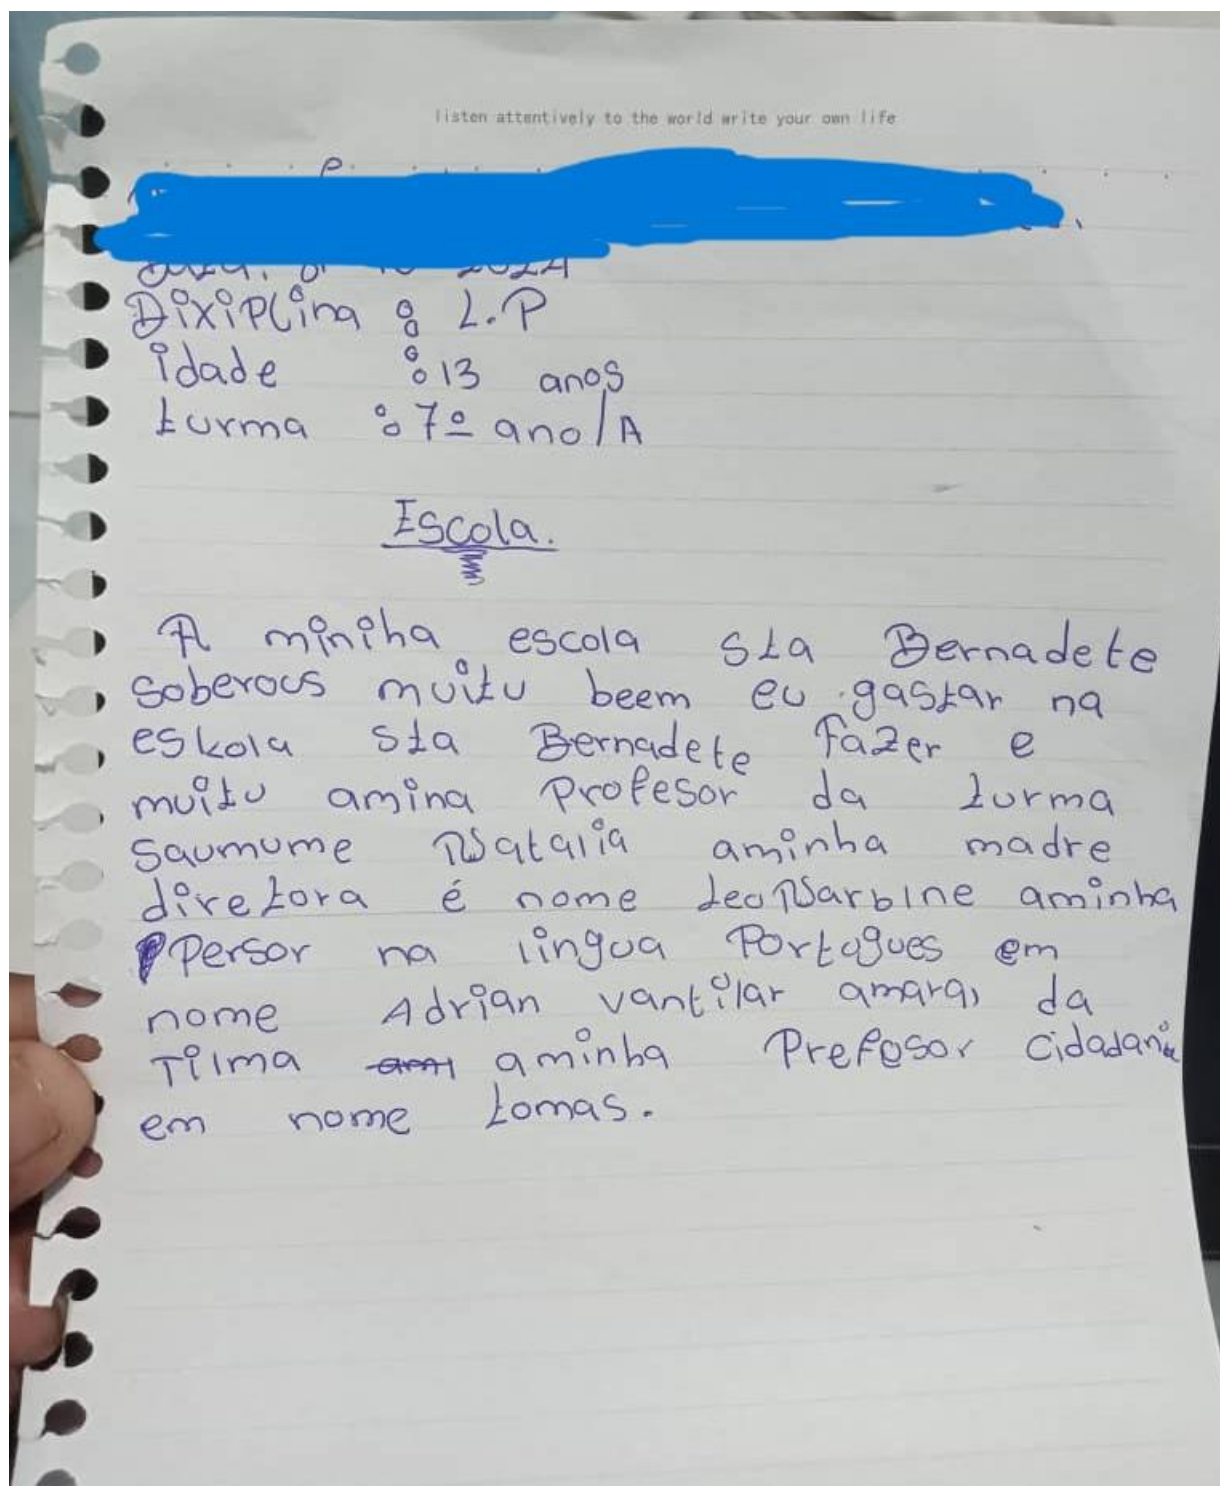 listen attentively to the world write your own life
2024
Dixiplina : L.P
idade : 13 anos
turma : 7º ano/A
Escola.
A miniha escola sta Bernadete
soberous muitu beem eu gastar na
eskola sta Bernadete fazer e
muitu amina Profesor da turma
saumume Natalia aminha madre
diretora é nome leoNarbine aminha
Persor na lingua Portugues em
nome Adrian vantilar amaral da
Tilma aminha Prefosor cidadania
em nome tomas.